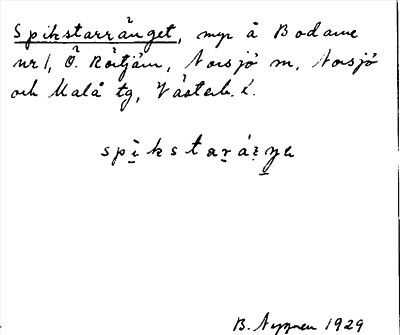 Spikstarränget, myr å Bodarne
nr 1, Ö. Rötjärn, Norsjö sn, Norsjö
och Malå tg, Västerb. l.
B. Nygren 1929